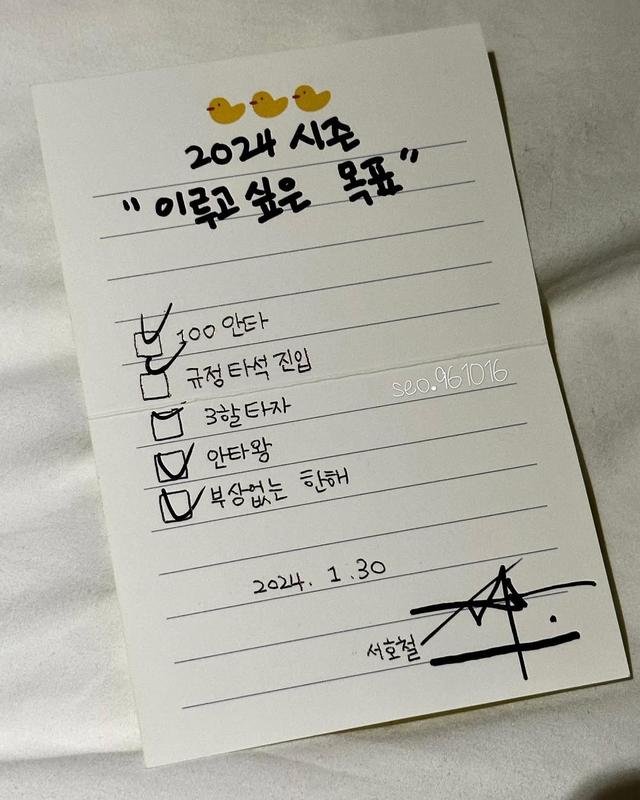 2024 시즌
"이루고 싶은 목표"
100 안타
규정타석 진입
seo.961016
3할타자
안타왕
부상없는 한해
2024. 1. 30
서호철